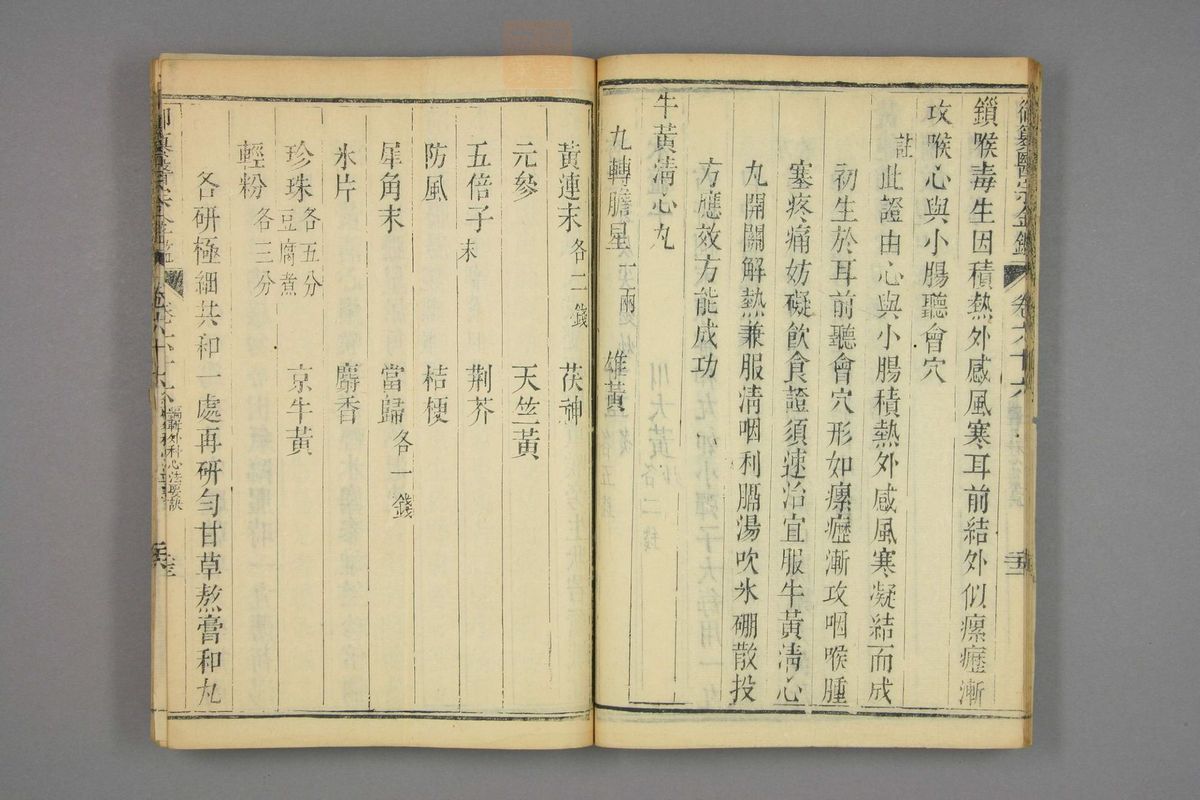 御纂醫宗金鑑 卷六十六
鎖喉毒生因積熱外感風寒耳前結外似瘰癧漸
攻喉心與小腸聽會穴
註此證由心與小腸積熱外感風寒凝結而成
初生於耳前聽會穴形如瘰癧漸攻咽喉腫
塞疼痛妨礙飲食證須速治宜服牛黃淸心
丸開關解熱兼服淸咽利膈湯吹氷硼散投
方應效方能成功
牛黃淸心丸
九轉膽星一兩 雄黃
黃連末各二錢 茯神
元參 天竺黃
五倍子末 荆芥
防風 桔梗
犀角末 當歸各一錢
氷片 麝香
珍珠各五分豆腐煮 京牛黃
輕粉各三分
各研極細共和一處再研勻甘草熬膏和丸
御纂醫宗金鑑 卷六十六 編輯外科心法要訣